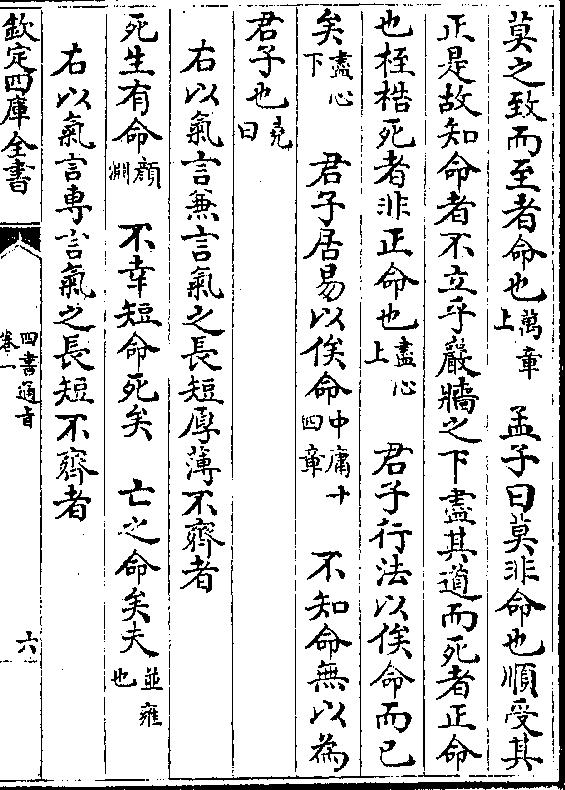 莫之致而至者命也萬章上　孟子曰莫非命也順受其
正是故知命者不立乎嚴牆之下盡其道而死者正命
也桎梏死者非正命也盡心上　君子行法以俟命而已
矣盡心下　君子居易以俟命中庸十四章　不知命無以為
君子也堯曰
右以氣言兼言氣之長短厚薄不齊者
死生有命顔淵　不幸短命死矣　亡之命矣夫並雍也
右以氣言專言氣之長短不齊者
欽定四庫全書
四書通旨
卷一
六